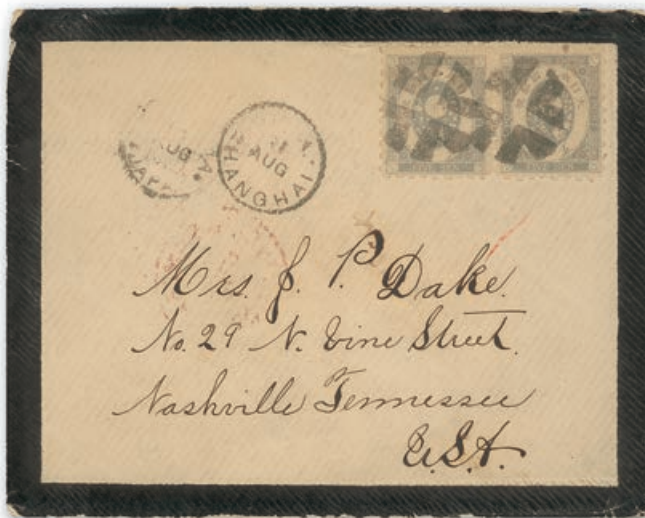 SHANGHAI
AUG
AUG
JAP
Mrs. J. P. Dake.
No. 29 N. Vine Street.
Nashville Tennessee
U.S.A.